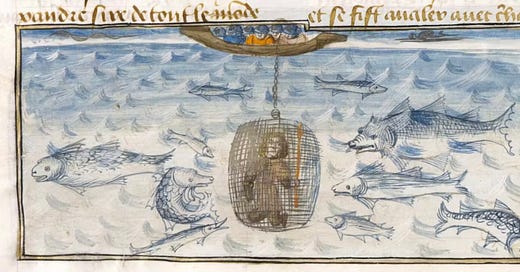 xandre sire de tout le mōde et se fist aualer auec